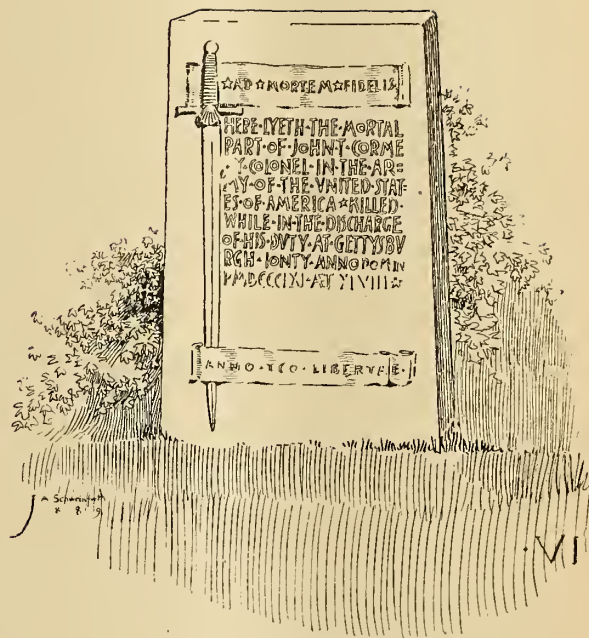 ☆AD☆MORTEM☆FIDELIS
HERE·LYETH·THE·MORTAL
PART·OF·JOHN·T·CORME
Y·COLONEL·IN·THE·AR=
MY·OF·THE·VNITED·STAT-
ES·OF·AMERICA☆KILLED·
WHILE·IN·THE·DISCHARGE
OF·HIS·DVTY·AT·GETTYSBV
RGH·IONTY·ANNO DOMIN
ANNO·LIBERTAE·
8·9
·VI